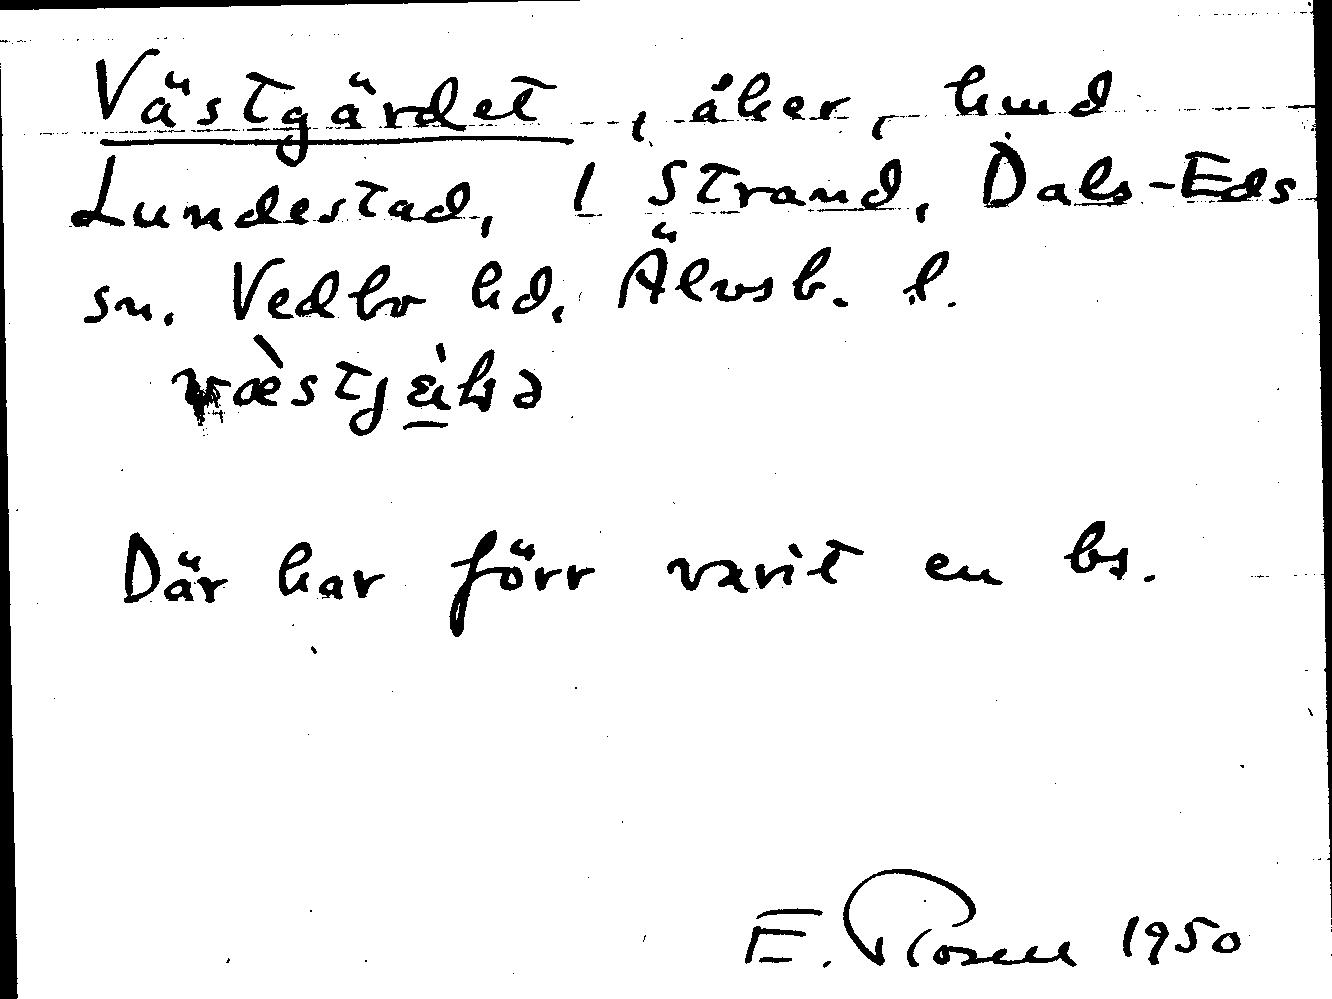 Västgärdet, åker, hmd
Lundestad, 1 Strand, Dals-Eds
sn. Vedbo hd, Älvsb. l.
Där har förr varit en bs.
E. Rosell 1950